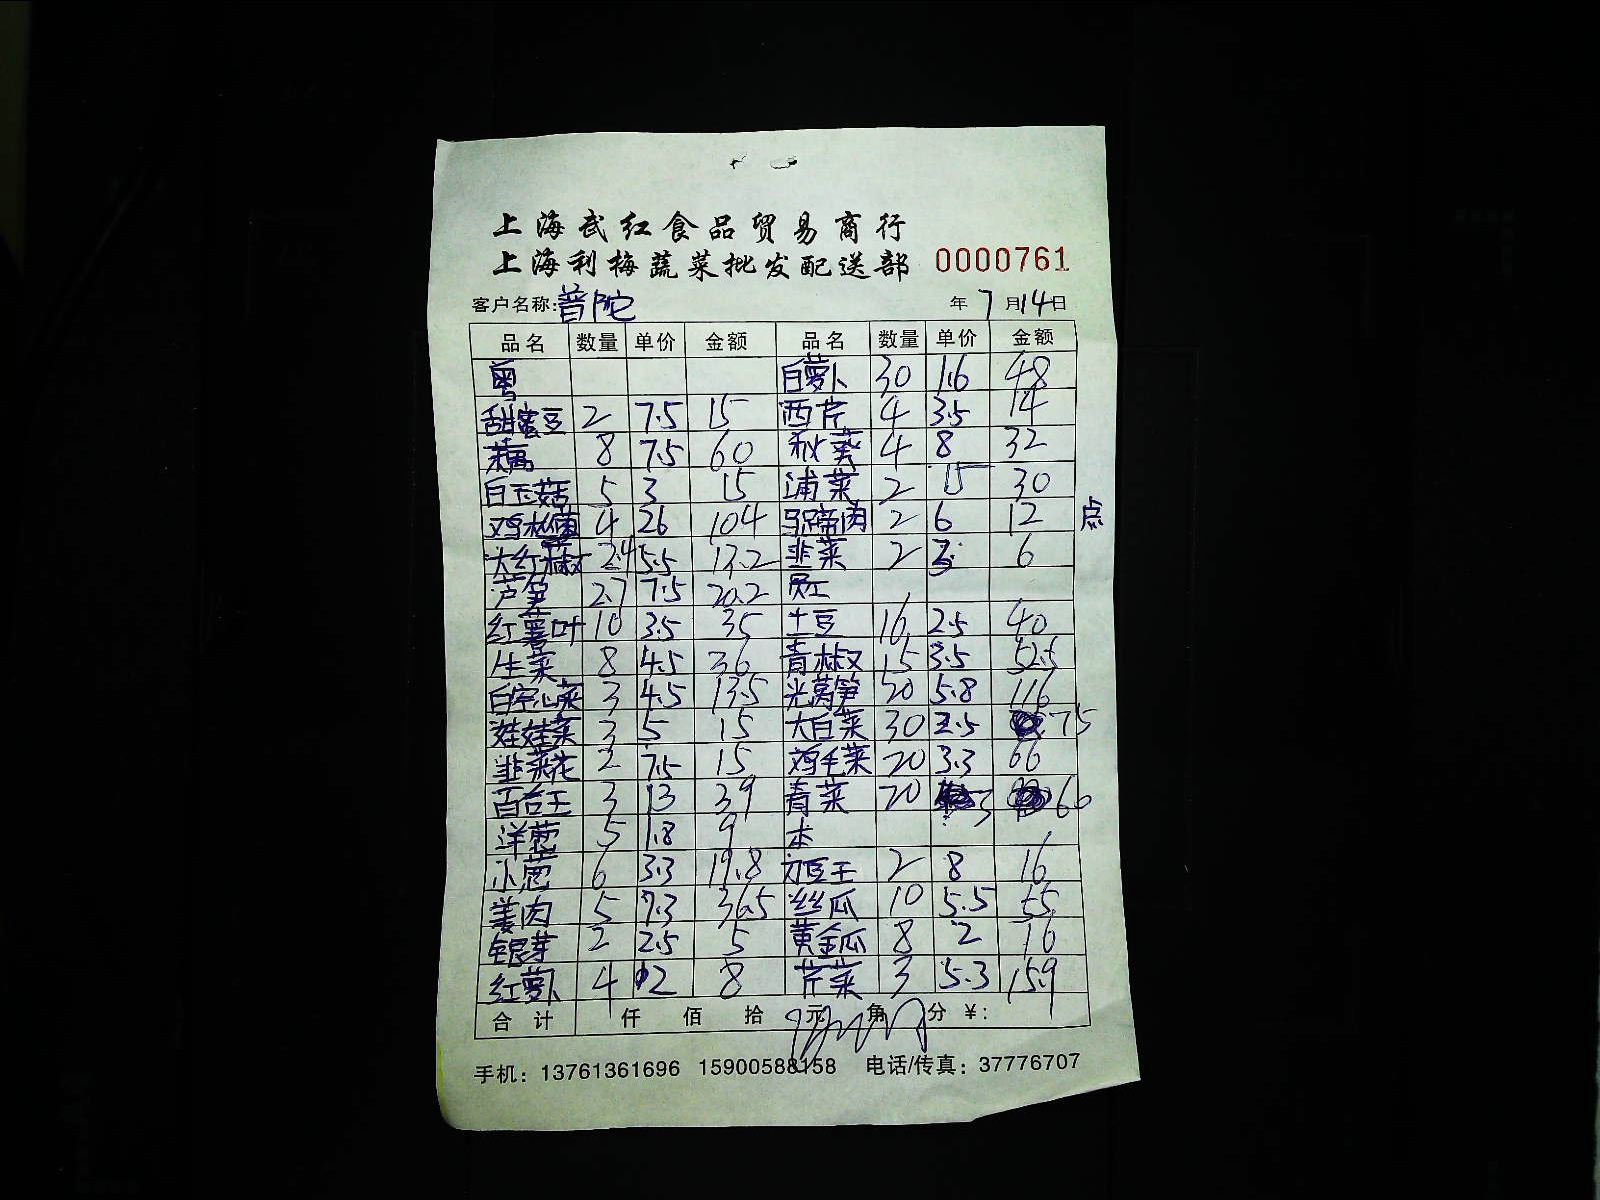 上海武红食品贸易商行
上海利梅蔬菜批发配送部 0000761
客户名称:普陀 年 7 月 14 日
品名 数量 单价 金额 品名 数量 单价 金额
粤 白萝卜 30 1.6 48
甜蜜豆 2 7.5 15 西芹 4 3.5 14
茶菇 8 7.5 60 秋葵 4 8 32
白玉菇 5 3 15 浦菜 2 15 30
鸡松菌 4 26 104 马蹄肉 2 6 12 点
大红椒 2.4 5.5 13.2 韭菜 2 3 6
芦笋 2.7 7.5 20.2 员工
红薯叶 10 3.5 35 土豆 16 2.5 40
生菜 8 4.5 36 青椒 15 3.5 52.5
白空心菜 3 4.5 13.5 光莴笋 20 5.8 116
娃娃菜 3 5 15 大白菜 30 2.5 75
韭菜花 2 7.5 15 鸡毛菜 20 3.3 66
百合王 3 13 39 青菜 20 3 60
洋葱 5 1.8 9 本
小葱 6 3.3 19.8 豆王 2 8 16
姜肉 5 7.3 36.5 丝瓜 10 5.5 55
银芽 2 2.5 5 黄金瓜 8 2 16
红萝卜 4 2 8 芹菜 3 5.3 15.9
合计 仟 佰 拾 元 角 分 ¥:
手机：13761361696 15900588158 电话/传真：37776707